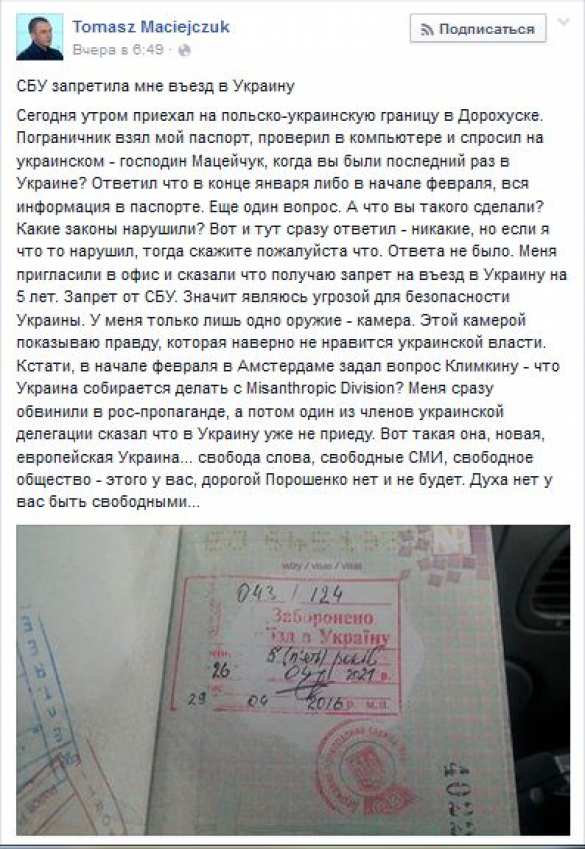 Tomasz Maciejczuk
Вчера в 6:49 ·
Подписаться
СБУ запретила мне въезд в Украину
Сегодня утром приехал на польско-украинскую границу в Дорохуске.
Пограничник взял мой паспорт, проверил в компьютере и спросил на
украинском - господин Мацейчук, когда вы были последний раз в
Украине? Ответил что в конце января либо в начале февраля, вся
информация в паспорте. Еще один вопрос. А что вы такого сделали?
Какие законы нарушили? Вот и тут сразу ответил - никакие, но если я
что то нарушил, тогда скажите пожалуйста что. Ответа не было. Меня
пригласили в офис и сказали что получаю запрет на въезд в Украину на
5 лет. Запрет от СБУ. Значит являюсь угрозой для безопасности
Украины. У меня только лишь одно оружие - камера. Этой камерой
показываю правду, которая наверно не нравится украинской власти.
Кстати, в начале февраля в Амстердаме задал вопрос Климкину - что
Украина собирается делать с Misanthropic Division? Меня сразу
обвинили в рос-пропаганде, а потом один из членов украинской
делегации сказал что в Украину уже не приеду. Вот такая она, новая,
европейская Украина... свобода слова, свободные СМИ, свободное
общество - этого у вас, дорогой Порошенко нет и не будет. Духа нет у
вас быть свободными...
wizy / visas / visas
043 / 124
Заборонено
їзд в Україну
5 (п'ять) років
26 04 2021 р.
29 04 2016 р. м.п.
4022